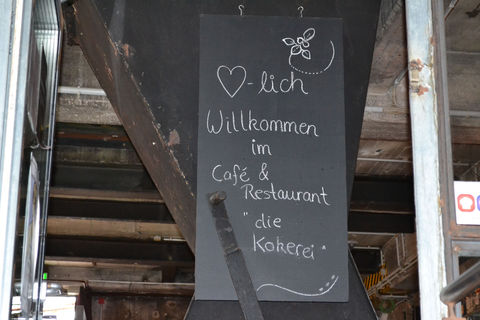 ♡-lich
Willkommen
im
Café &
Restaurant
"die
Kokerei"